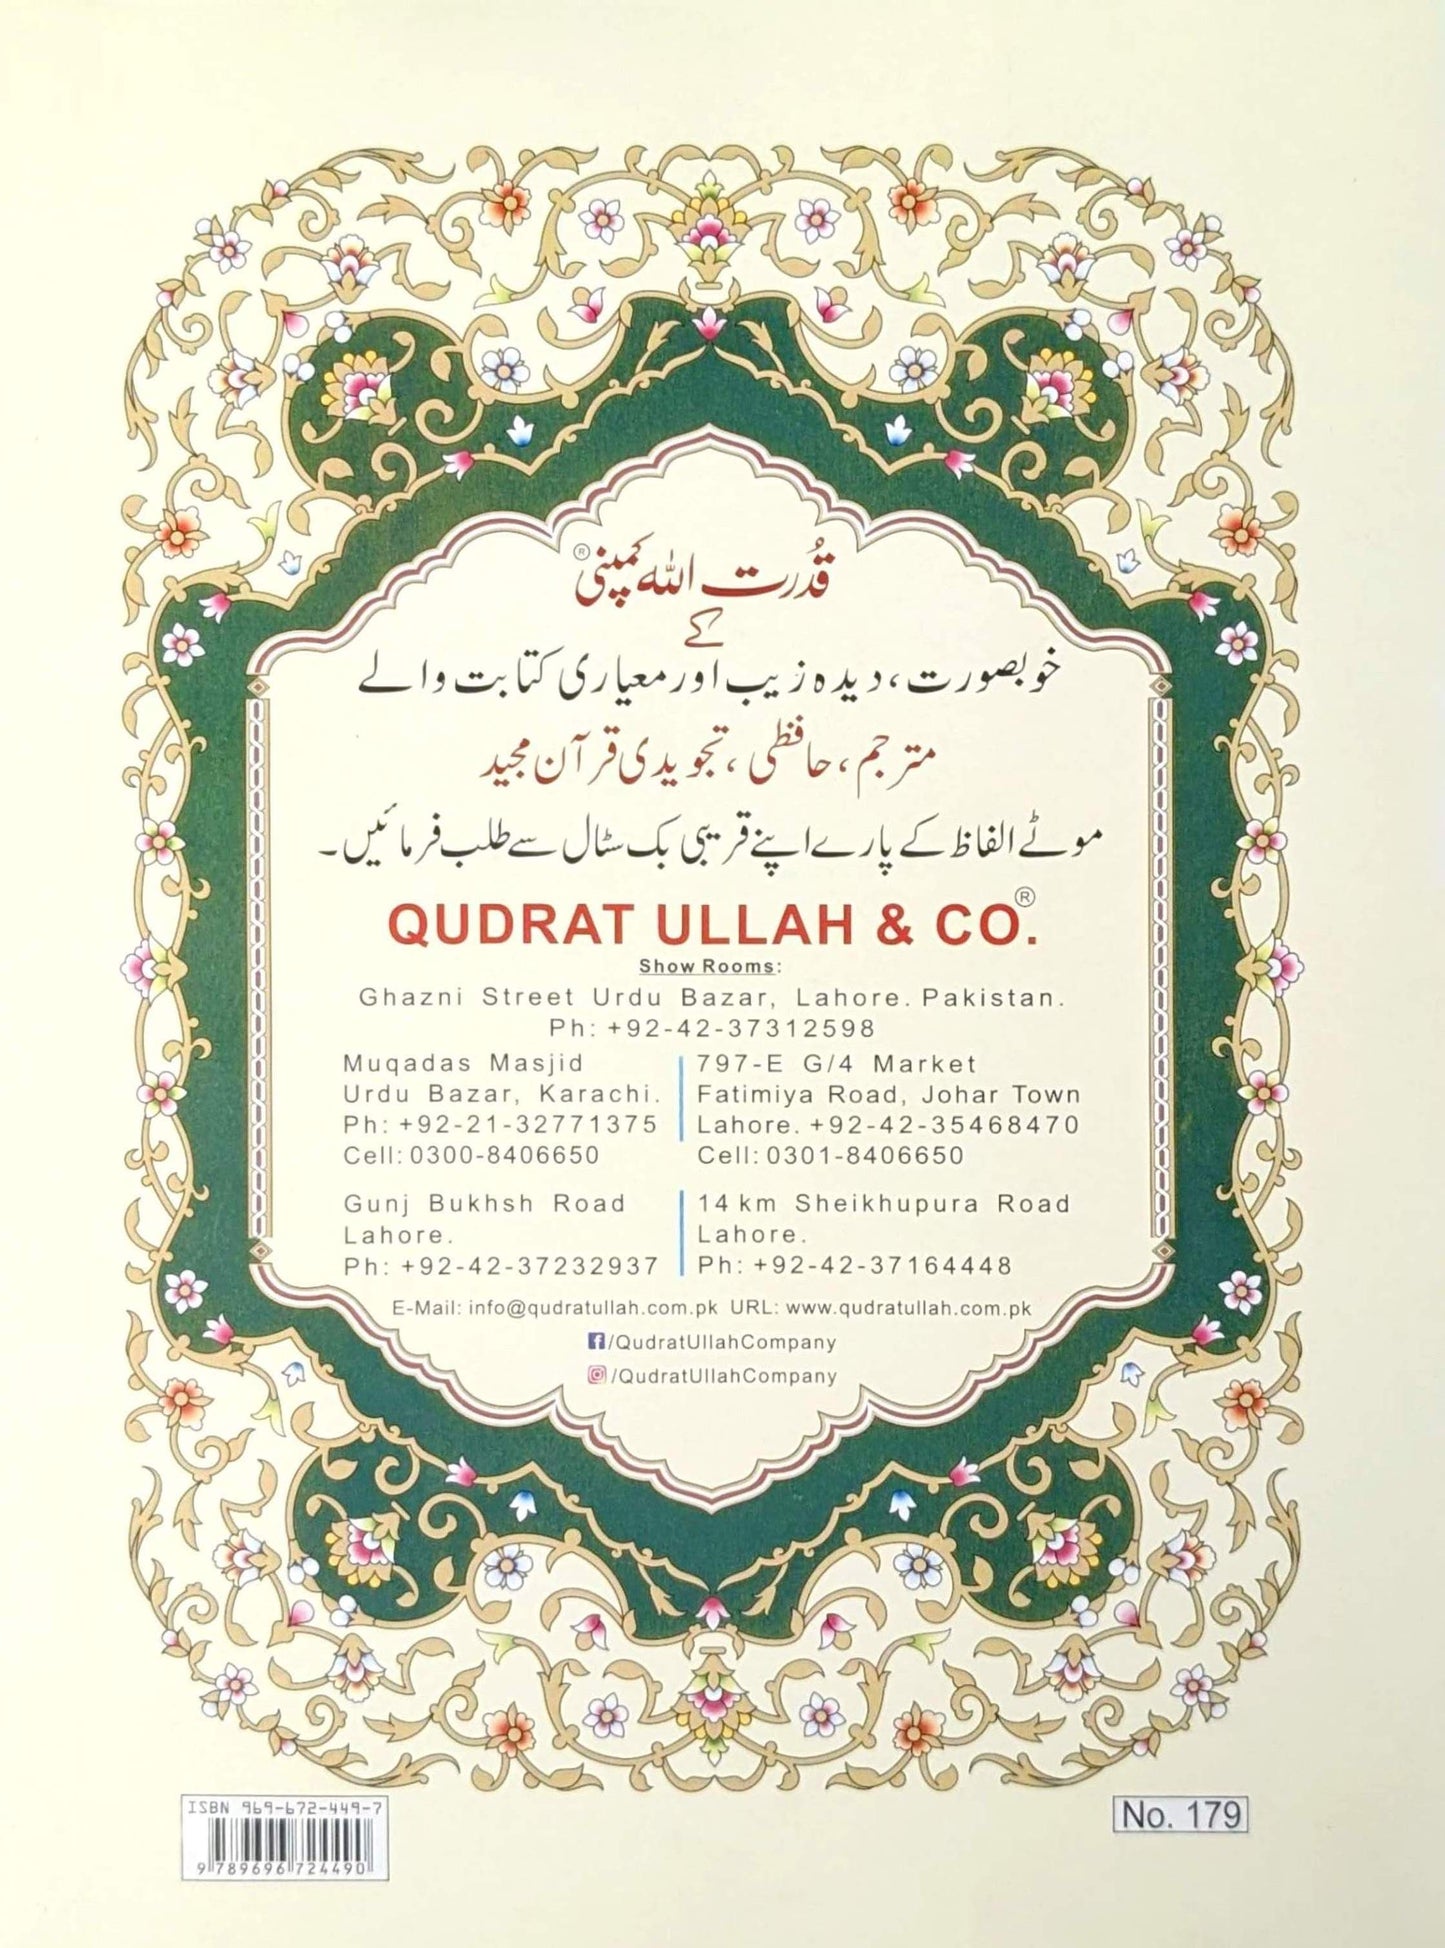 قُدرت اللہ کمپنی®
کے
خوبصورت، دیدہ زیب اور معیاری کتابت والے
مترجم، حافظی، تجویدی قرآن مجید
موٹے الفاظ کے پارے اپنے قریبی بک سٹال سے طلب فرمائیں۔
QUDRAT ULLAH & CO.®
Show Rooms:
Ghazni Street Urdu Bazar, Lahore. Pakistan.
Ph: +92-42-37312598
Muqadas Masjid
Urdu Bazar, Karachi.
Ph: +92-21-32771375
Cell: 0300-8406650
797-E G/4 Market
Fatimiya Road, Johar Town
Lahore. +92-42-35468470
Cell: 0301-8406650
Gunj Bukhsh Road
Lahore.
Ph: +92-42-37232937
14 km Sheikhupura Road
Lahore.
Ph: +92-42-37164448
E-Mail: info@qudratullah.com.pk URL: www.qudratullah.com.pk
/QudratUllahCompany
/QudratUllahCompany
ISBN 969-672-449-7
9 789696 724490
No. 179